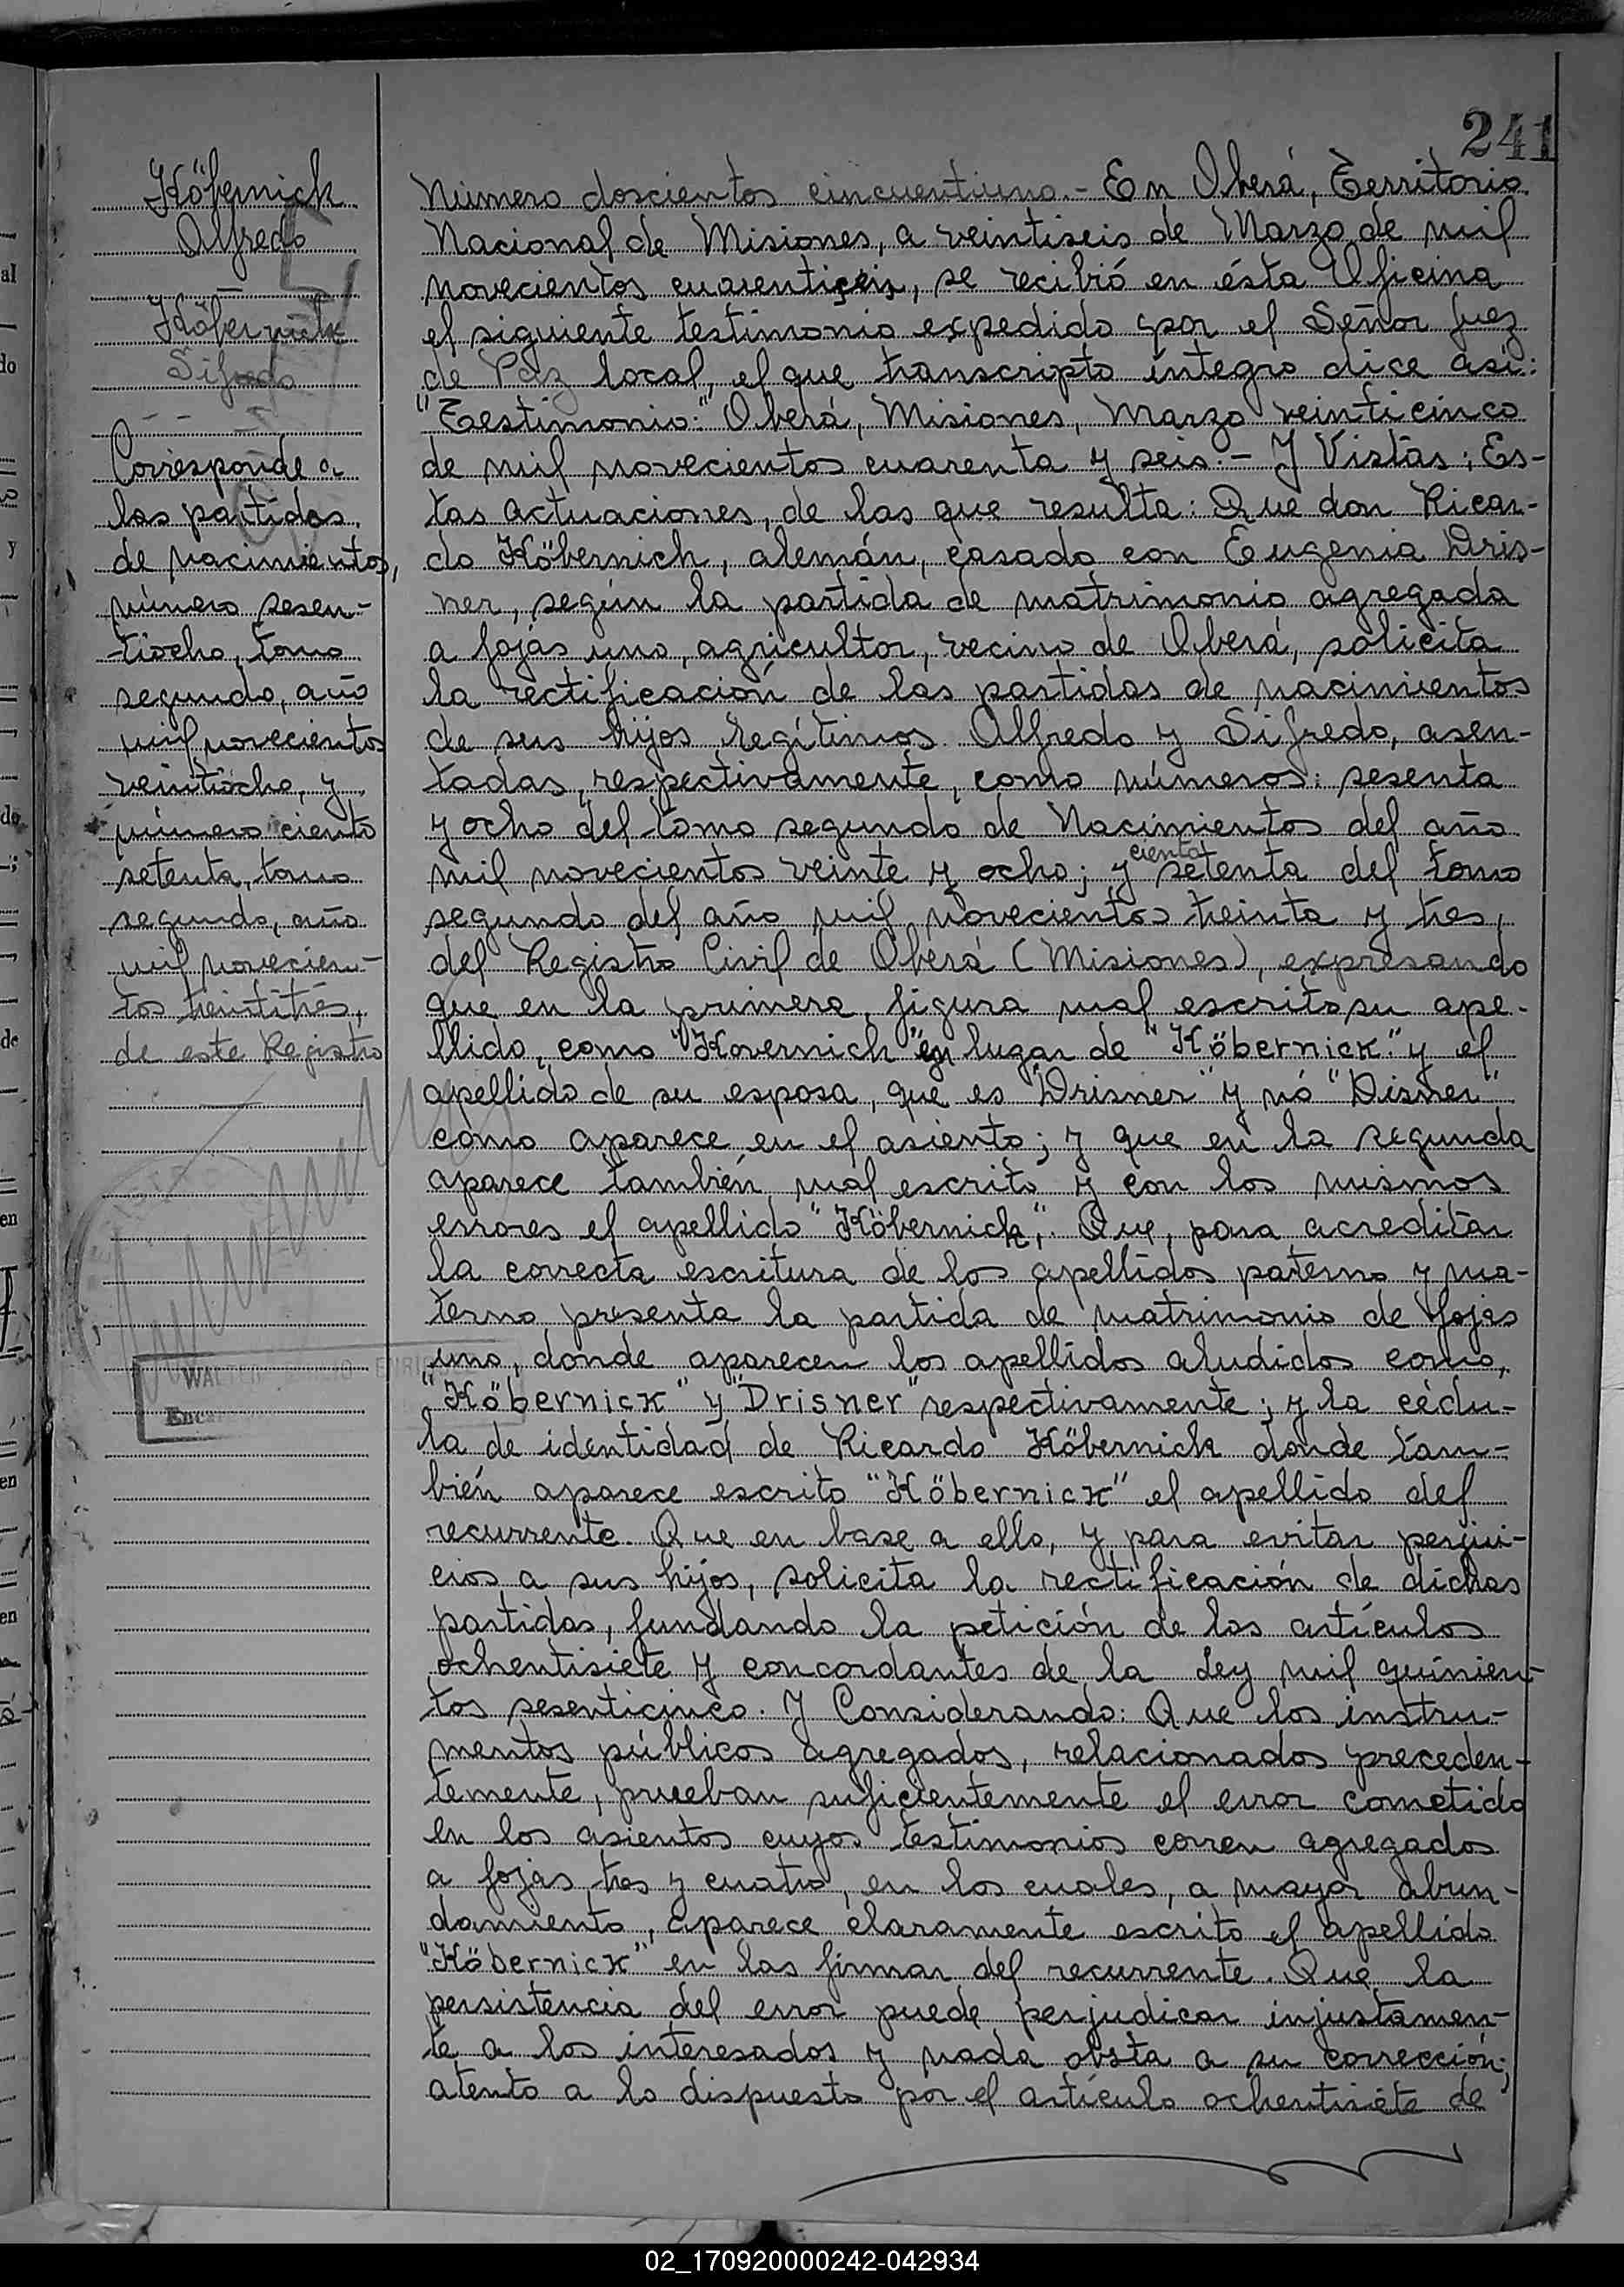 241
Köbernick
Alfredo
Köbernick
Sifredo
Corresponde a
las partidas
de nacimientos,
número sesen-
tiocho, tomo
segundo, año
mil novecientos
veintiocho, y
número ciento
setenta, tomo
segundo, año
mil novecien-
tos treintitrés,
de este Registro
WALTER
Encar
Número doscientos cincuentiuno.- En Oberá, Territorio
Nacional de Misiones, a veintiseis de Marzo de mil
novecientos cuarentiseis, se recibió en ésta Oficina
el siguiente testimonio expedido por el Señor Juez
de Paz local, el que transcripto íntegro dice así:
"Testimonio:" Oberá, Misiones, Marzo veinticinco
de mil novecientos cuarenta y seis.- Y Vistas; Es-
tas actuaciones, de las que resulta: Que don Ricar-
do Köbernich, alemán, casado con Eugenia Dris-
ner, según la partida de matrimonio agregada
a fojas uno, agricultor, vecino de Oberá, solicita
la rectificación de las partidas de nacimientos
de sus hijos legítimos Alfredo y Sifredo, asen-
tadas, respectivamente, como números: sesenta
y ocho del tomo segundo de Nacimientos del año
mil novecientos veinte y ocho; y ciento setenta del tomo
segundo del año mil novecientos treinta y tres,
del Registro Civil de Oberá (Misiones), expresando
que en la primera, figura mal escrito su ape-
llido, como "Kovernich" en lugar de "Köbernick" y el
apellido de su esposa, que es "Drisner" y nó "Disner"
como aparece en el asiento; y que en la segunda
aparece también mal escrito y con los mismos
errores el apellido "Köbernick",. Que, para acreditar
la correcta escritura de los apellidos paterno y ma-
terno presenta la partida de matrimonio de fojas
uno, donde aparecen los apellidos aludidos como,
"Köbernick" y "Drisner" respectivamente; y la cédu-
la de identidad de Ricardo Köbernick donde tam-
bién aparece escrito "Köbernick" el apellido del
recurrente. Que en base a ello, y para evitar perjui-
cios a sus hijos, solicita la rectificación de dichas
partidas, fundando la petición de los artículos
ochentisiete y concordantes de la Ley mil quinien-
tos sesenticinco. Y Considerando: Que los instru-
mentos públicos agregados, relacionados preceden-
temente, prueban suficientemente el error cometido
en los asientos cuyos testimonios corren agregados
a fojas tres y cuatro, en los cuales, a mayor abun-
damiento, aparece claramente escrito el apellido
"Köbernick" en las firmas del recurrente. Que la
persistencia del error puede perjudicar injustamen-
te a los interesados y nada obsta a su corrección;
atento a lo dispuesto por el artículo ochentisiete de
02_170920000242-042934